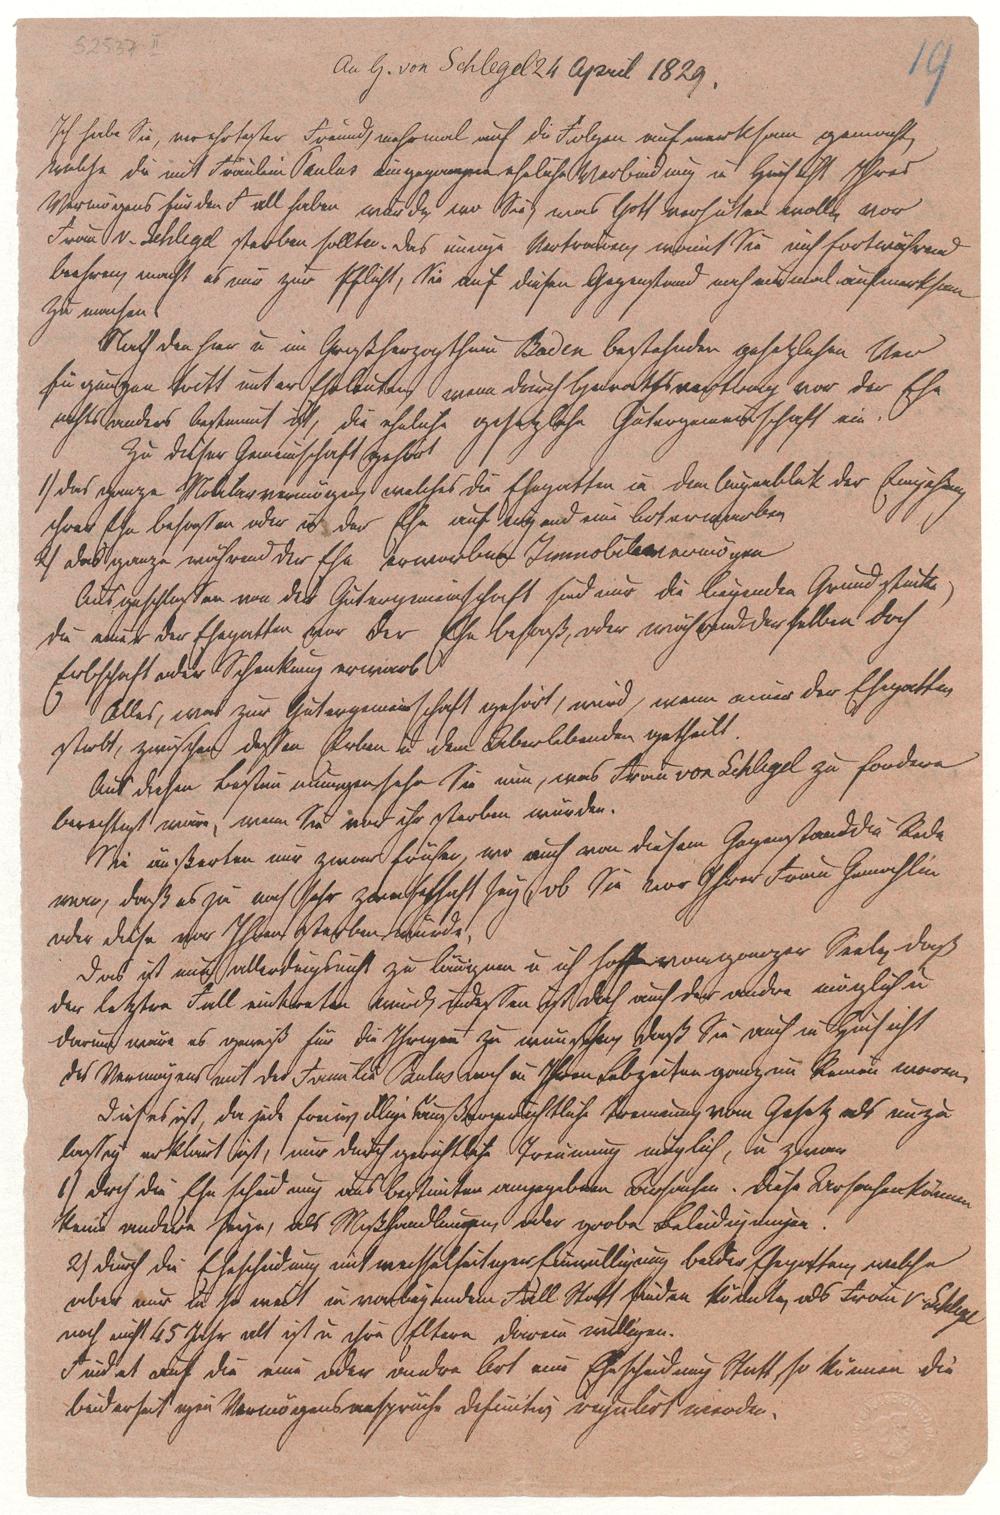 52537 II
19
An H. von Schlegel 24 April 1829.
Ich habe Sie, verehrtester Freund, mehrmal auf die Folgen aufmerksam gemacht,
welche die mit Fräulein Paulus eingegangene eheliche Verbindung in Hinsicht Ihres
Vermögens für den Fall haben würde, wo Sie, was Gott verhüten wolle, vor
Frau v. Schlegel sterben sollten. Das innige Vertrauen, womit Sie mich fortwährend
beehren, macht es mir zur Pflicht, Sie auf diesen Gegenstand noch einmal aufmerksam
zu machen.
Nach den hier u im Großherzogthum Baden bestehenden gesetzlichen Ver
fügungen tritt unter Eheleuten, wenn durch Heurathsvertrag vor der Ehe
nichts anders bestimmt ist, die eheliche gesetzliche Gütergemeinschaft ein.
Zu dieser Gemeinschaft gehört
1) das ganze Mobilarvermögen, welches die Ehegatten in dem Augenblick der Eingehung
ihrer Ehe besassen oder in der Ehe auf irgend eine Art erwerben
2) das ganze während der Ehe erworbene Immobilarvermögen
Ausgeschlossen von der Gütergemeinschaft sind nur die liegenden Grundstücke,
die einer der Ehegatten vor der Ehe besaß, oder während derselben durch
Erbschaft oder Schenkung erwarb
Alles, was zur Gütergemeinschaft gehört, wird, wenn einer der Ehegatten
stirbt, zwischen dessen Erben u dem Überlebenden getheilt.
Aus diesen Bestimmungen sehn Sie nun, was Frau von Schlegel zu fordern
berechtigt wäre, wenn Sie vor ihr sterben würden.
Sie äußerten mir zwar früher, wo auch von diesem Gegenstand die Rede
war, daß es ja noch sehr zweifelhaft sey, ob Sie vor Ihrer Frau Gemahlin
oder diese vor Ihnen sterben würde,
Das ist nun allerdings nicht zu läugnen u ich hoffe von ganzer Seele, daß
der letztre Fall eintreten wird, indessen ist doch auch der andre möglich u
darum wäre es gewiß für die Ihrigen zu wünschen, daß Sie auch in Hinsicht
des Vermögens mit der Familie Paulus noch in Ihren Lebzeiten ganz im Reinen wären.
Dieß es ist, da jede freiwillige außergerichtliche Trennung vom Gesetz als unzu
lässig erklärt ist, nur durch gerichtliche Trennung möglich, u zwar
1) drch die Ehescheidung aus bestimten angegebenen Ursachen. Diese Ursachen können
keine andere seyn, als Mißhandlungen, oder grobe Beleidigungen.
2) durch die Ehescheidung mit wechselseitiger Einwilligung beider Ehegatten, welche
aber nur in so weit in vorliegendem Fall Statt finden könnte, als Frau v Schlegel
noch nicht 45 Jahr alt ist u ihre Eltern darein willigen.
Findet auf die eine oder andre Art eine Ehescheidung Statt, so können die
beiderseitigen Vermögensansprüche definitiv regulirt werden.